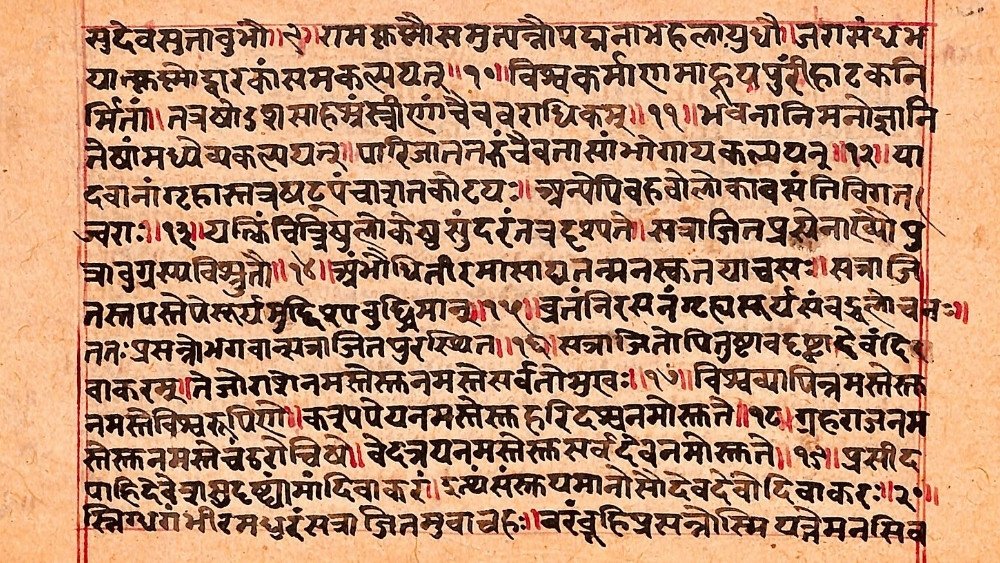 सुदेवसुतावुभौ॥९॥रामकृष्णौसमुत्पन्नौपद्मनाभहलायुधौ॥जरासंधभ
यात्कृष्णोद्वारकांसमकल्पयत्॥१०॥विश्वकर्माणमाहूयपुरींहाटकनि
र्मितां॥तत्रषोडशसाहस्रंस्त्रीणांचैववराधिकम्॥११॥भवनानिमनोज्ञानि
तेषांमध्येव्यकल्पयत्॥पारिजाततरुंचैवतासांभोगायकल्पयन्॥१२॥या
दवानांगृहास्तत्रषट्पंचाशतकोटयः॥अन्येपिबहवोलोकावसंतिविगत
ज्वराः॥१३॥यत्किंचित्त्रिषुलोकेषुसुंदरंतत्रदृश्यते॥सत्राजितप्रसेनाख्यौपु
त्रावुग्रस्यविश्रुतौ॥१४॥अंभौधितीरमासाद्यतन्मनस्कतयाचसः॥सत्राजि
तस्तपस्तेपेसूर्यमुद्दिश्यबुद्धिमान्॥१५॥व्रतंनिरसनंगृह्यसूर्यसंबद्धलोचनः॥
ततःप्रसन्नोभगवान्सत्राजितपुरस्थित॥१६॥सत्राजितोपितुष्टावदृष्ट्वादेवंदि
वाकरम्॥तेजोराशेनमस्तेस्तुनमस्तेसर्वतोमुखः॥१७॥विश्वव्यापिन्नमस्तेस्तु
नमस्तेविश्वरूपिणे॥कश्यपेयनमस्तेस्तुहरिदश्वनमोस्तुते॥१८॥ग्रहराजनम
स्तेस्तुनमस्तेचंडरोचिषे॥वेदत्रयनमस्तेस्तुसर्वदेवनमोस्तुते॥१९॥प्रसीद
पाहिदेवेशसुदृष्ट्यामांदिवाकरं॥इत्थंसंस्तूयमानोसौदेवदेवोदिवाकरः॥२०॥
स्निग्धगंभीरमधुरंसत्राजितमुवाचहः॥वरंब्रूहिप्रसन्नोस्मियत्तेमनसिव